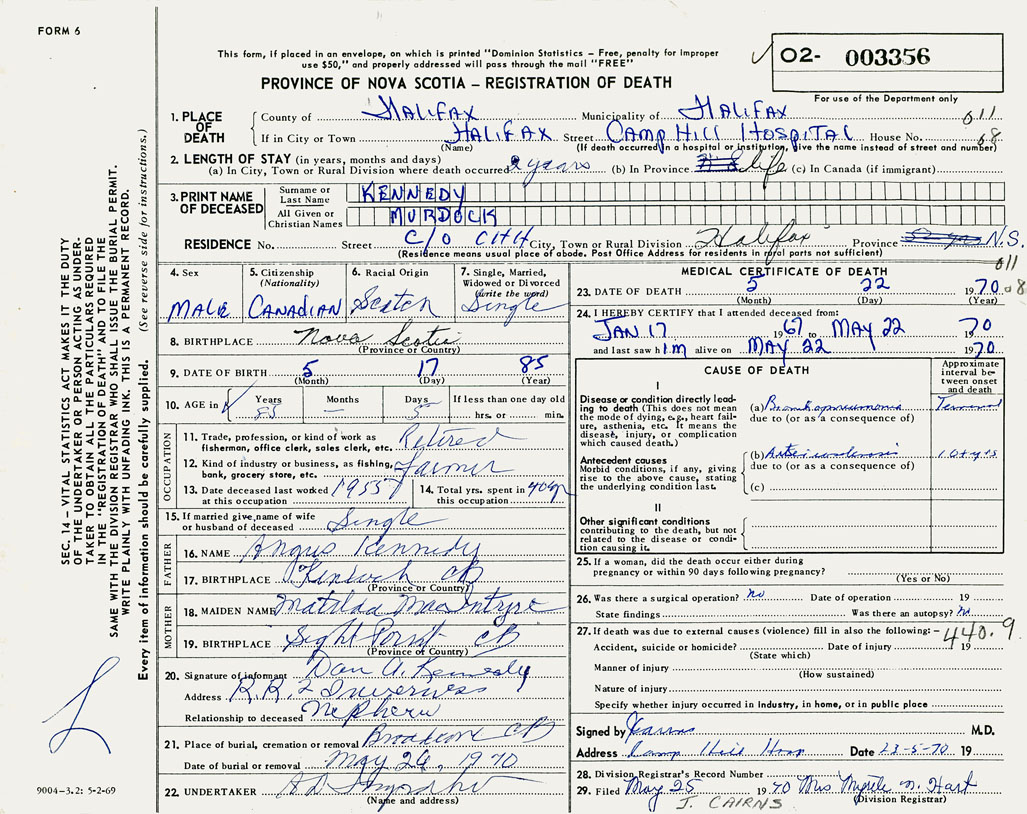 FORM 6
This form, if placed in an envelope, on which is printed "Dominion Statistics – Free, penalty for improper
use $50," and properly addressed will pass through the mail "FREE"
O2- 003356
For use of the Department only
PROVINCE OF NOVA SCOTIA – REGISTRATION OF DEATH
1. PLACE OF DEATH
County of HALIFAX Municipality of HALIFAX 011
If in City or Town HALIFAX Street CAMP HILL HOSPITAL House No. 08
(Name) (If death occurred in a hospital or institution, give the name instead of street and number)
2. LENGTH OF STAY (in years, months and days)
(a) In City, Town or Rural Division where death occurred 2 years (b) In Province life (c) In Canada (if immigrant)
3. PRINT NAME OF DECEASED
Surname or Last Name KENNEDY
All Given or Christian Names MURDOCK
RESIDENCE No. Street C/O CHH City, Town or Rural Division Halifax Province N.S.
(Residence means usual place of abode. Post Office Address for residents in rural parts not sufficient)
011
08
4. Sex
MALE
5. Citizenship
(Nationality)
CANADIAN
6. Racial Origin
Scotch
7. Single, Married,
Widowed or Divorced
(write the word)
Single
8. BIRTHPLACE Nova Scotia
(Province or Country)
9. DATE OF BIRTH 5 17 85
(Month) (Day) (Year)
10. AGE in Years Months Days If less than one day old
85 – 5 hrs. or min.
OCCUPATION
11. Trade, profession, or kind of work as
fisherman, office clerk, sales clerk, etc. Retired
12. Kind of industry or business, as fishing,
bank, grocery store, etc. Farmer
13. Date deceased last worked
at this occupation 1955
14. Total yrs. spent in
this occupation 40
15. If married give name of wife
or husband of deceased Single
FATHER
16. NAME Angus Kennedy
17. BIRTHPLACE CB
(Province or Country)
MOTHER
18. MAIDEN NAME Matilda MacIntyre
19. BIRTHPLACE Sight Point CB
(Province or Country)
20. Signature of informant Dan A. Kennedy
Address R.R. 2 Inverness
Relationship to deceased Nephew
21. Place of burial, cremation or removal CB
Date of burial or removal May 26, 1970
22. UNDERTAKER
(Name and address)
MEDICAL CERTIFICATE OF DEATH
23. DATE OF DEATH 5 22 1970
(Month) (Day) (Year)
24. I HEREBY CERTIFY that I attended deceased from:
JAN 17 1967 to MAY 22 1970
and last saw him alive on MAY 22 1970
CAUSE OF DEATH
Approximate
interval be-
tween onset
and death
I
Disease or condition directly lead-
ing to death (This does not mean
the mode of dying, e.g., heart fail-
ure, asthenia, etc. It means the
disease, injury, or complication
which caused death.)
(a) Bronchopneumonia Terminal
due to (or as a consequence of)
Antecedent causes
Morbid conditions, if any, giving
rise to the above cause, stating
the underlying condition last.
(b) Arteriosclerosis 10 yrs
due to (or as a consequence of)
(c)
II
Other significant conditions
contributing to the death, but not
related to the disease or condi-
tion causing it.
25. If a woman, did the death occur either during
pregnancy or within 90 days following pregnancy?
(Yes or No)
26. Was there a surgical operation? No Date of operation 19
State findings Was there an autopsy? No
27. If death was due to external causes (violence) fill in also the following:– 440.9
Accident, suicide or homicide? Date of injury 19
(State which)
Manner of injury
(How sustained)
Nature of injury
Specify whether injury occurred in industry, in home, or in public place
Signed by Cairns M.D.
Address Camp Hill Hosp Date 23-5-70 19
28. Division Registrar's Record Number
29. Filed May 25 1970 Mrs Myrtle N. Hart
J. CAIRNS (Division Registrar)
SEC. 14 – VITAL STATISTICS ACT MAKES IT THE DUTY
OF THE UNDERTAKER OR PERSON ACTING AS UNDER-
TAKER TO OBTAIN ALL THE PARTICULARS REQUIRED
IN THE "REGISTRATION OF DEATH" AND TO FILE THE
SAME WITH THE DIVISION REGISTRAR WHO SHALL ISSUE THE BURIAL PERMIT.
WRITE PLAINLY WITH UNFADING INK. THIS IS A PERMANENT RECORD.
Every item of information should be carefully supplied. (See reverse side for instructions.)
9004–3.2: 5-2-69